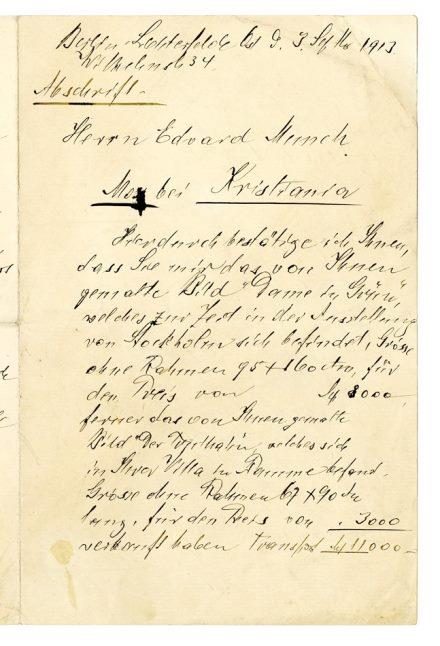 Berlin-Lichterfelde Ost d. 3. Sept 1913
Wilhelmstr 34.
Abschrift.
Herrn Edvard Munch
Moss bei Kristiania
Hierdurch bestätige ich Ihnen,
dass Sie mir das von Ihnen
gemalte Bild "Dame in Grün",
welches zur Zeit in der Ausstellung
von Stockholm sich befindet, Grösse
ohne Rahmen 95 x 160 ctm, für
den Preis von M 8000
ferner das von Ihnen gemalte
Bild "Der", welches sich
in Ihrer Villa in Ramme befand.
Grösse ohne Rahmen 67 x 90
lang, für den Preis von " 3000
verkauft haben Transport M 11000-